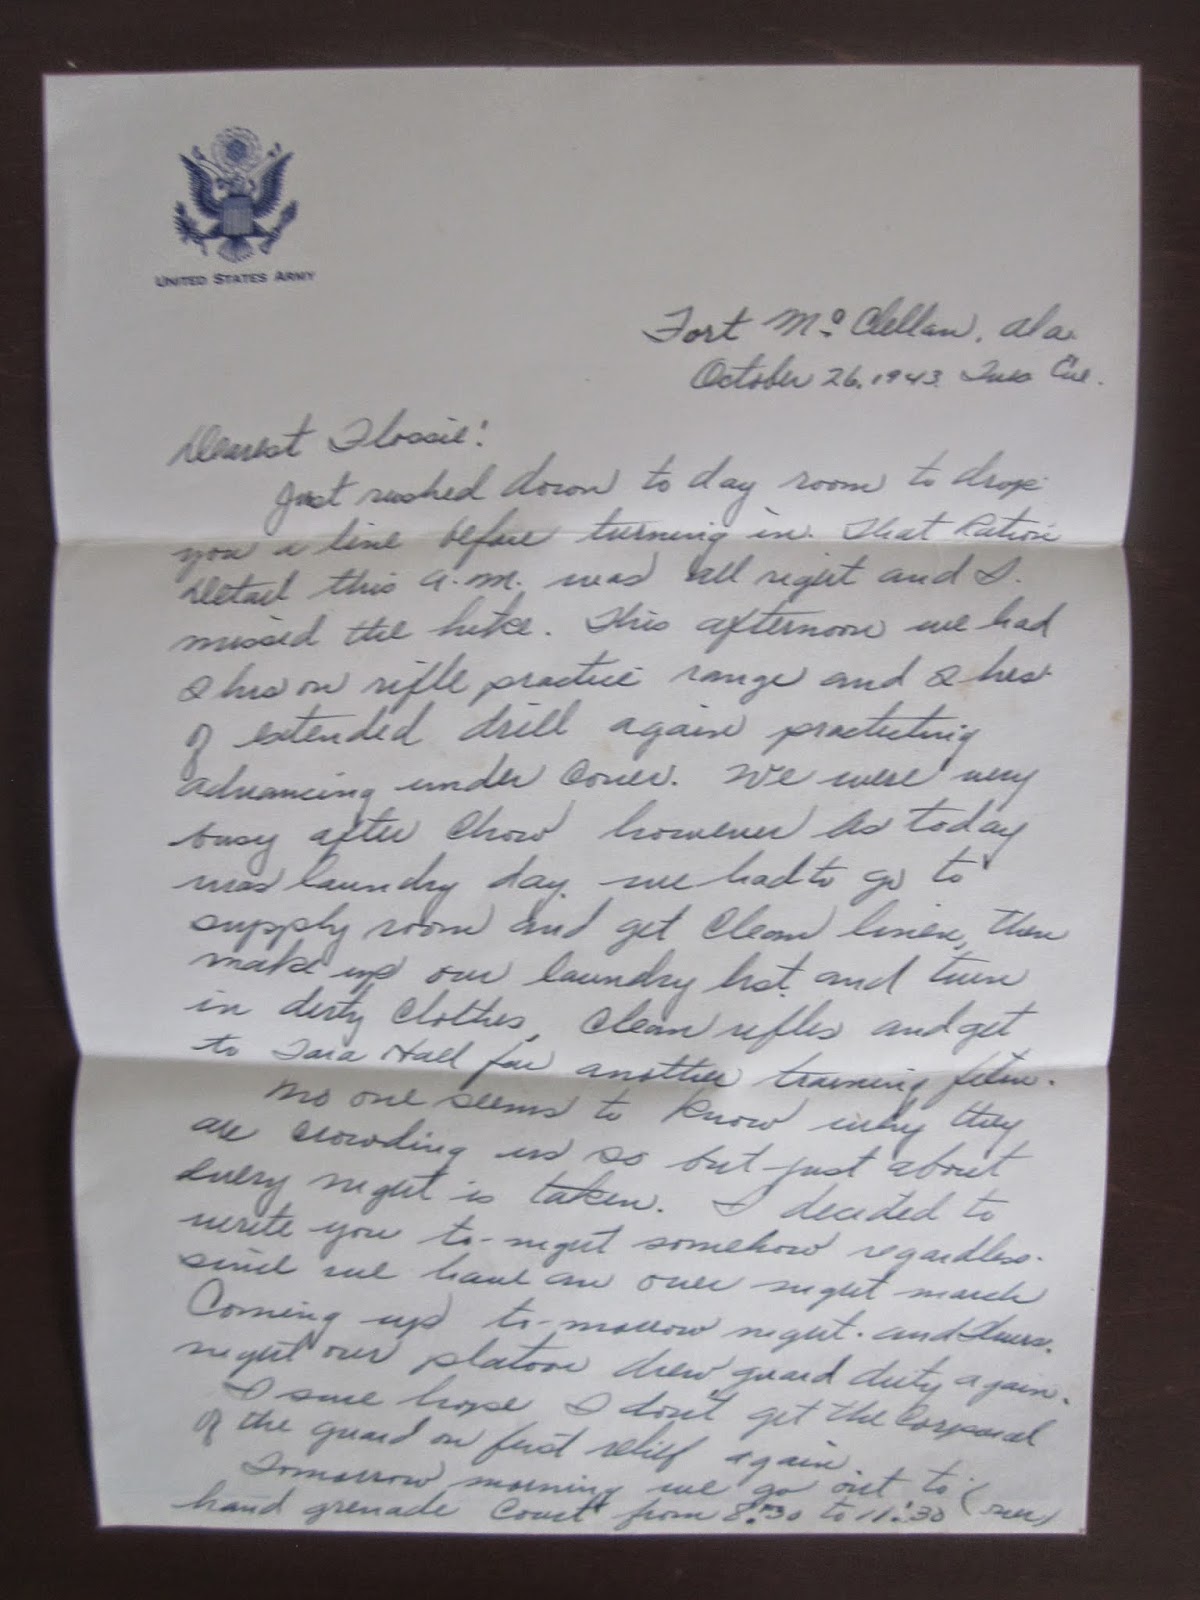 UNITED STATES ARMY
Fort Mc Clellan, Ala.
October 26, 1943. Tues Eve.
Dearest Flossie!
Just rushed down to day room to drop
you a line before turning in. That Ration
Detail this A.M. was all right and I
missed the hike. This afternoon we had
2 hrs on rifle practice range and 2 hrs.
of extended drill again practicing
advancing under cover. We were very
busy after chow however as today
was laundry day. we had to go to
supply room and get clean linen, then
make up our laundry list and turn
in dirty clothes, clean rifles and get
to Tara Hall for another training film.
No one seems to know why they
are crowding us so but just about
every night is taken. I decided to
write you to-night somehow regardless.
since we have an over night march
coming up to-morrow night. and Thurs.
night our platoon drew guard duty again.
I sure hope I don't get the Corporal
of the guard on first relief again.
Tomorrow morning we go out to
hand grenade Court from 8:30 to 11:30 (over)